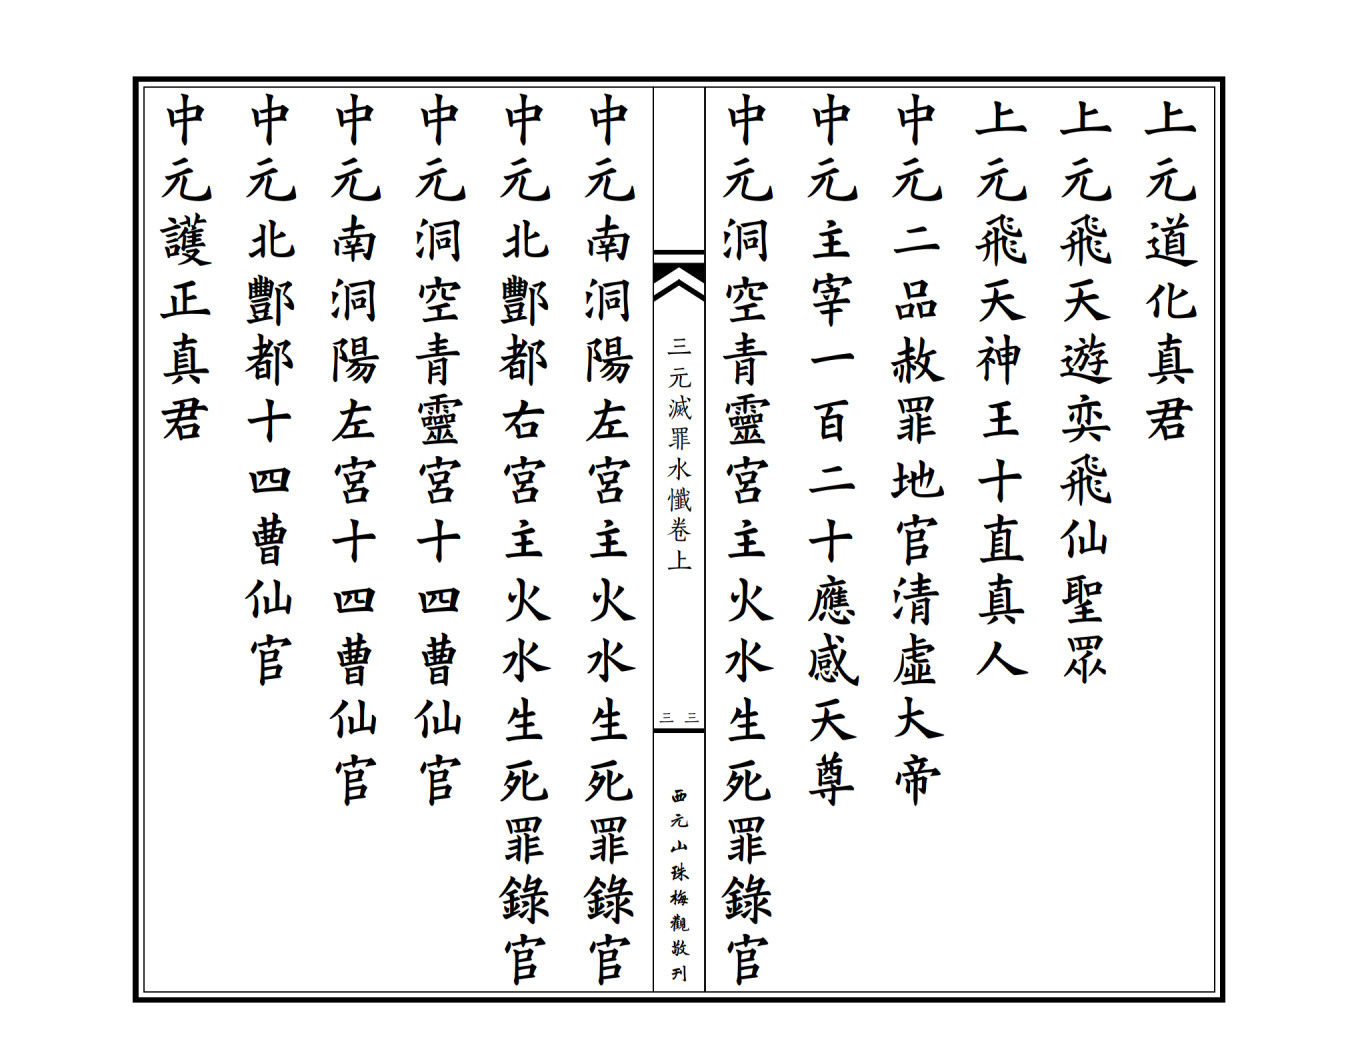 上元道化真君
上元飛天遊奕飛仙聖眾
上元飛天神王十直真人
中元二品赦罪地官清虛大帝
中元主宰一百二十應感天尊
中元洞空青靈宮主火水生死罪錄官
三元滅罪水懺卷上
三三
西元山珠梅觀敬刊
中元南洞陽左宮主火水生死罪錄官
中元北酆都右宮主火水生死罪錄官
中元洞空青靈宮十四曹仙官
中元南洞陽左宮十四曹仙官
中元北酆都十四曹仙官
中元護正真君